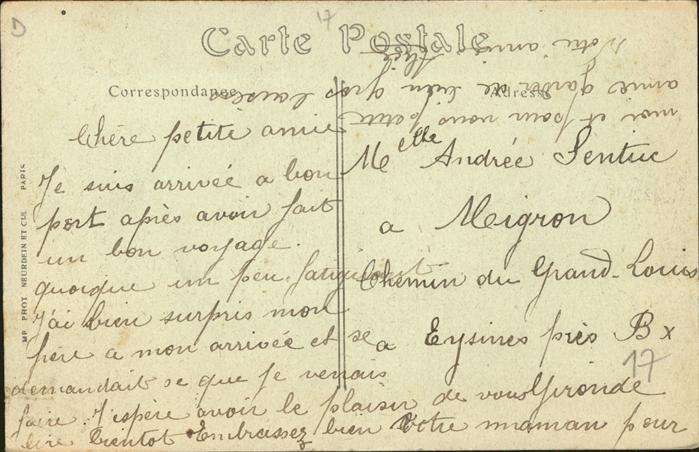 D
17
Carte Postale
Correspondance
Adresse
MP PHOT. NEURDEIN ET CIE. PARIS
Chère petite amie
Je suis arrivée a bon
port après avoir fait
un bon voyage.
quoique un peu fatiguant.
J'ai bien surpris mon
père a mon arrivée et se
demandait se que je venais
faire. J'espère avoir le plaisir de vous
lire bientot Embrassez bien votre maman pour
moi et pour vous petite
amie garder de bien gros baisers
Votre amie
Melle Andrée Sentuc
a Meigron
Chemin du Grand-Louis
a Eysines près Bx
Gironde
17